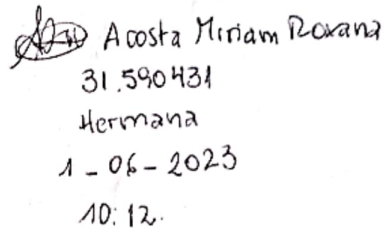 Acosta Miriam Roxana
31.590431
Hermana
1 - 06 - 2023
10:12.